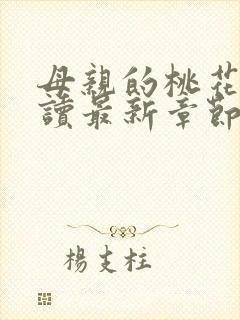 母親的桃花
讀最新章節
楊支柱